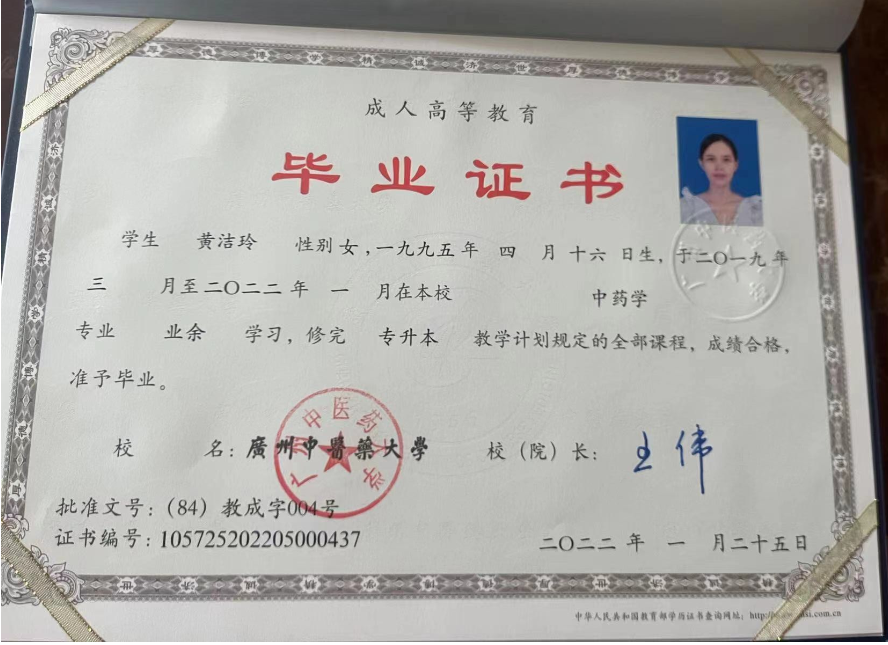 成人高等教育
毕业证书
学生 黄洁玲 性别 女，一九九五年 四 月 十六 日生，于二〇一九年
三 月至二〇二二年 一 月在本校 中药学
专业 业余 学习，修完 专升本 教学计划规定的全部课程，成绩合格，
准予毕业。
校 名：廣州中醫藥大學 校（院）长：王伟
广州中医药大学
批准文号：（84）教成字004号
证书编号：105725202205000437
二〇二二年 一 月二十五日
中华人民共和国教育部学历证书查询网址：